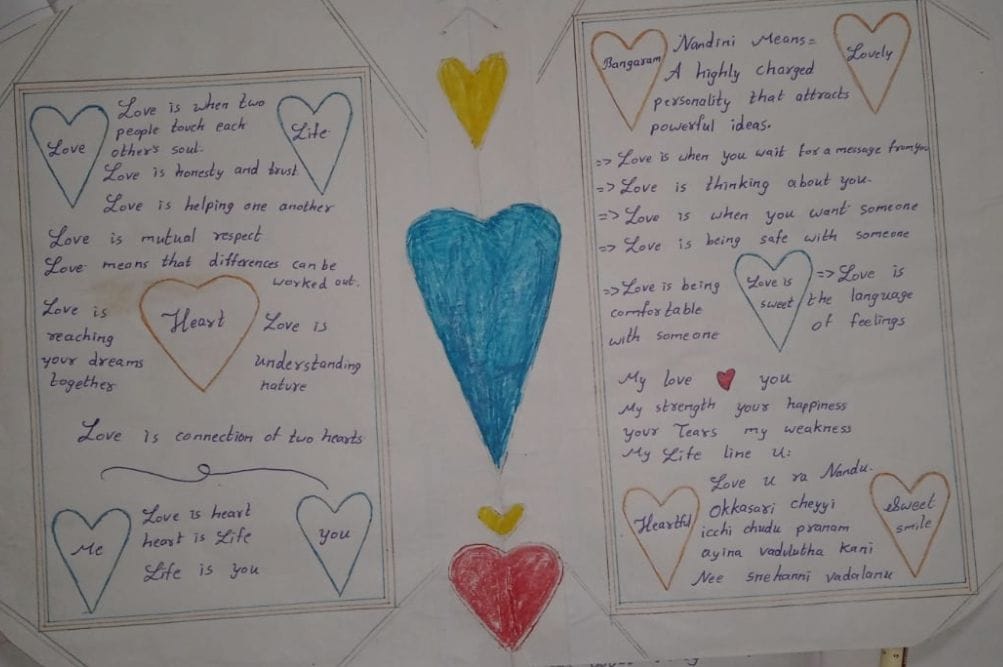 Love
Life
Love is when two
people touch each
other's soul.
Love is honesty and trust
Love is helping one another
Love is mutual respect
Love means that differences can be
worked out.
Love is
reaching
your dreams
together
Heart
Love is
understanding
nature
Love is connection of two hearts
Me
Love is heart
heart is Life
Life is you
you
Bangaram
Nandini Means=
A highly charged
personality that attracts
powerful ideas.
Lovely
=> Love is when you wait for a message from you
=> Love is thinking about you.
=> Love is when you want someone
=> Love is being safe with someone
=> Love is being
comfortable
with someone
Love is
sweet
=> Love is
the language
of feelings
My love you
My strength your happiness
your Tears my weakness
My Life line U:
Heartful
Love u ra Nandu.
Okkasari cheyyi
icchi chudu pranam
ayina vadulutha kani
Nee snehanni vadalanu
Sweet
smile